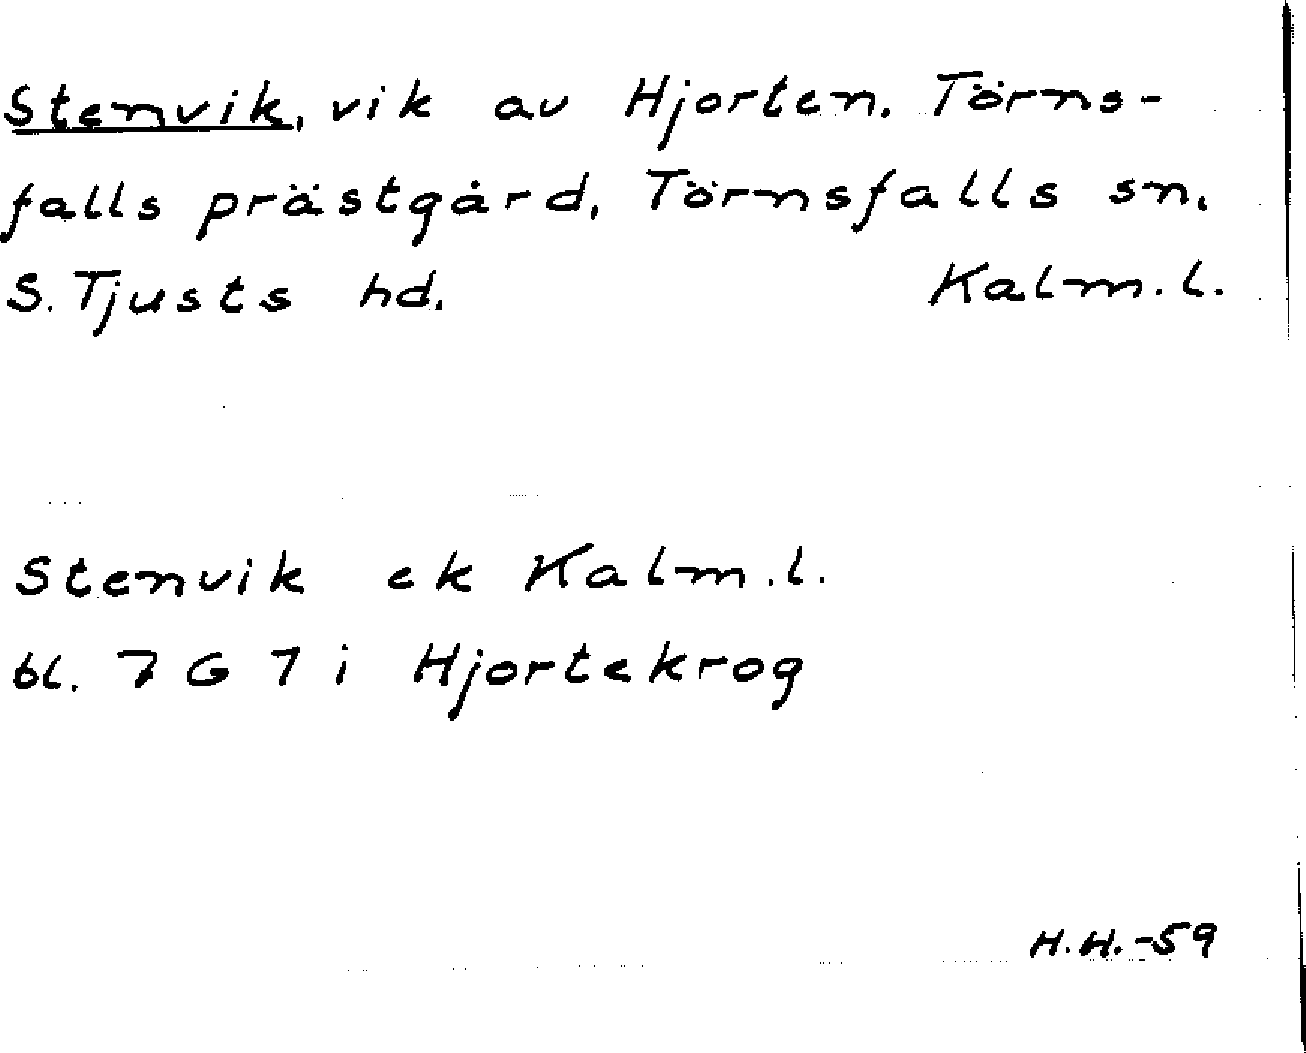 Stenvik, vik av Hjorten. Törns-
falls prästgård, Törnsfalls sn.
S. Tjusts hd. Kalm. l.
Stenvik ek Kalm. l.
bl. 7 G 7 i Hjortekrog
H.H.-59